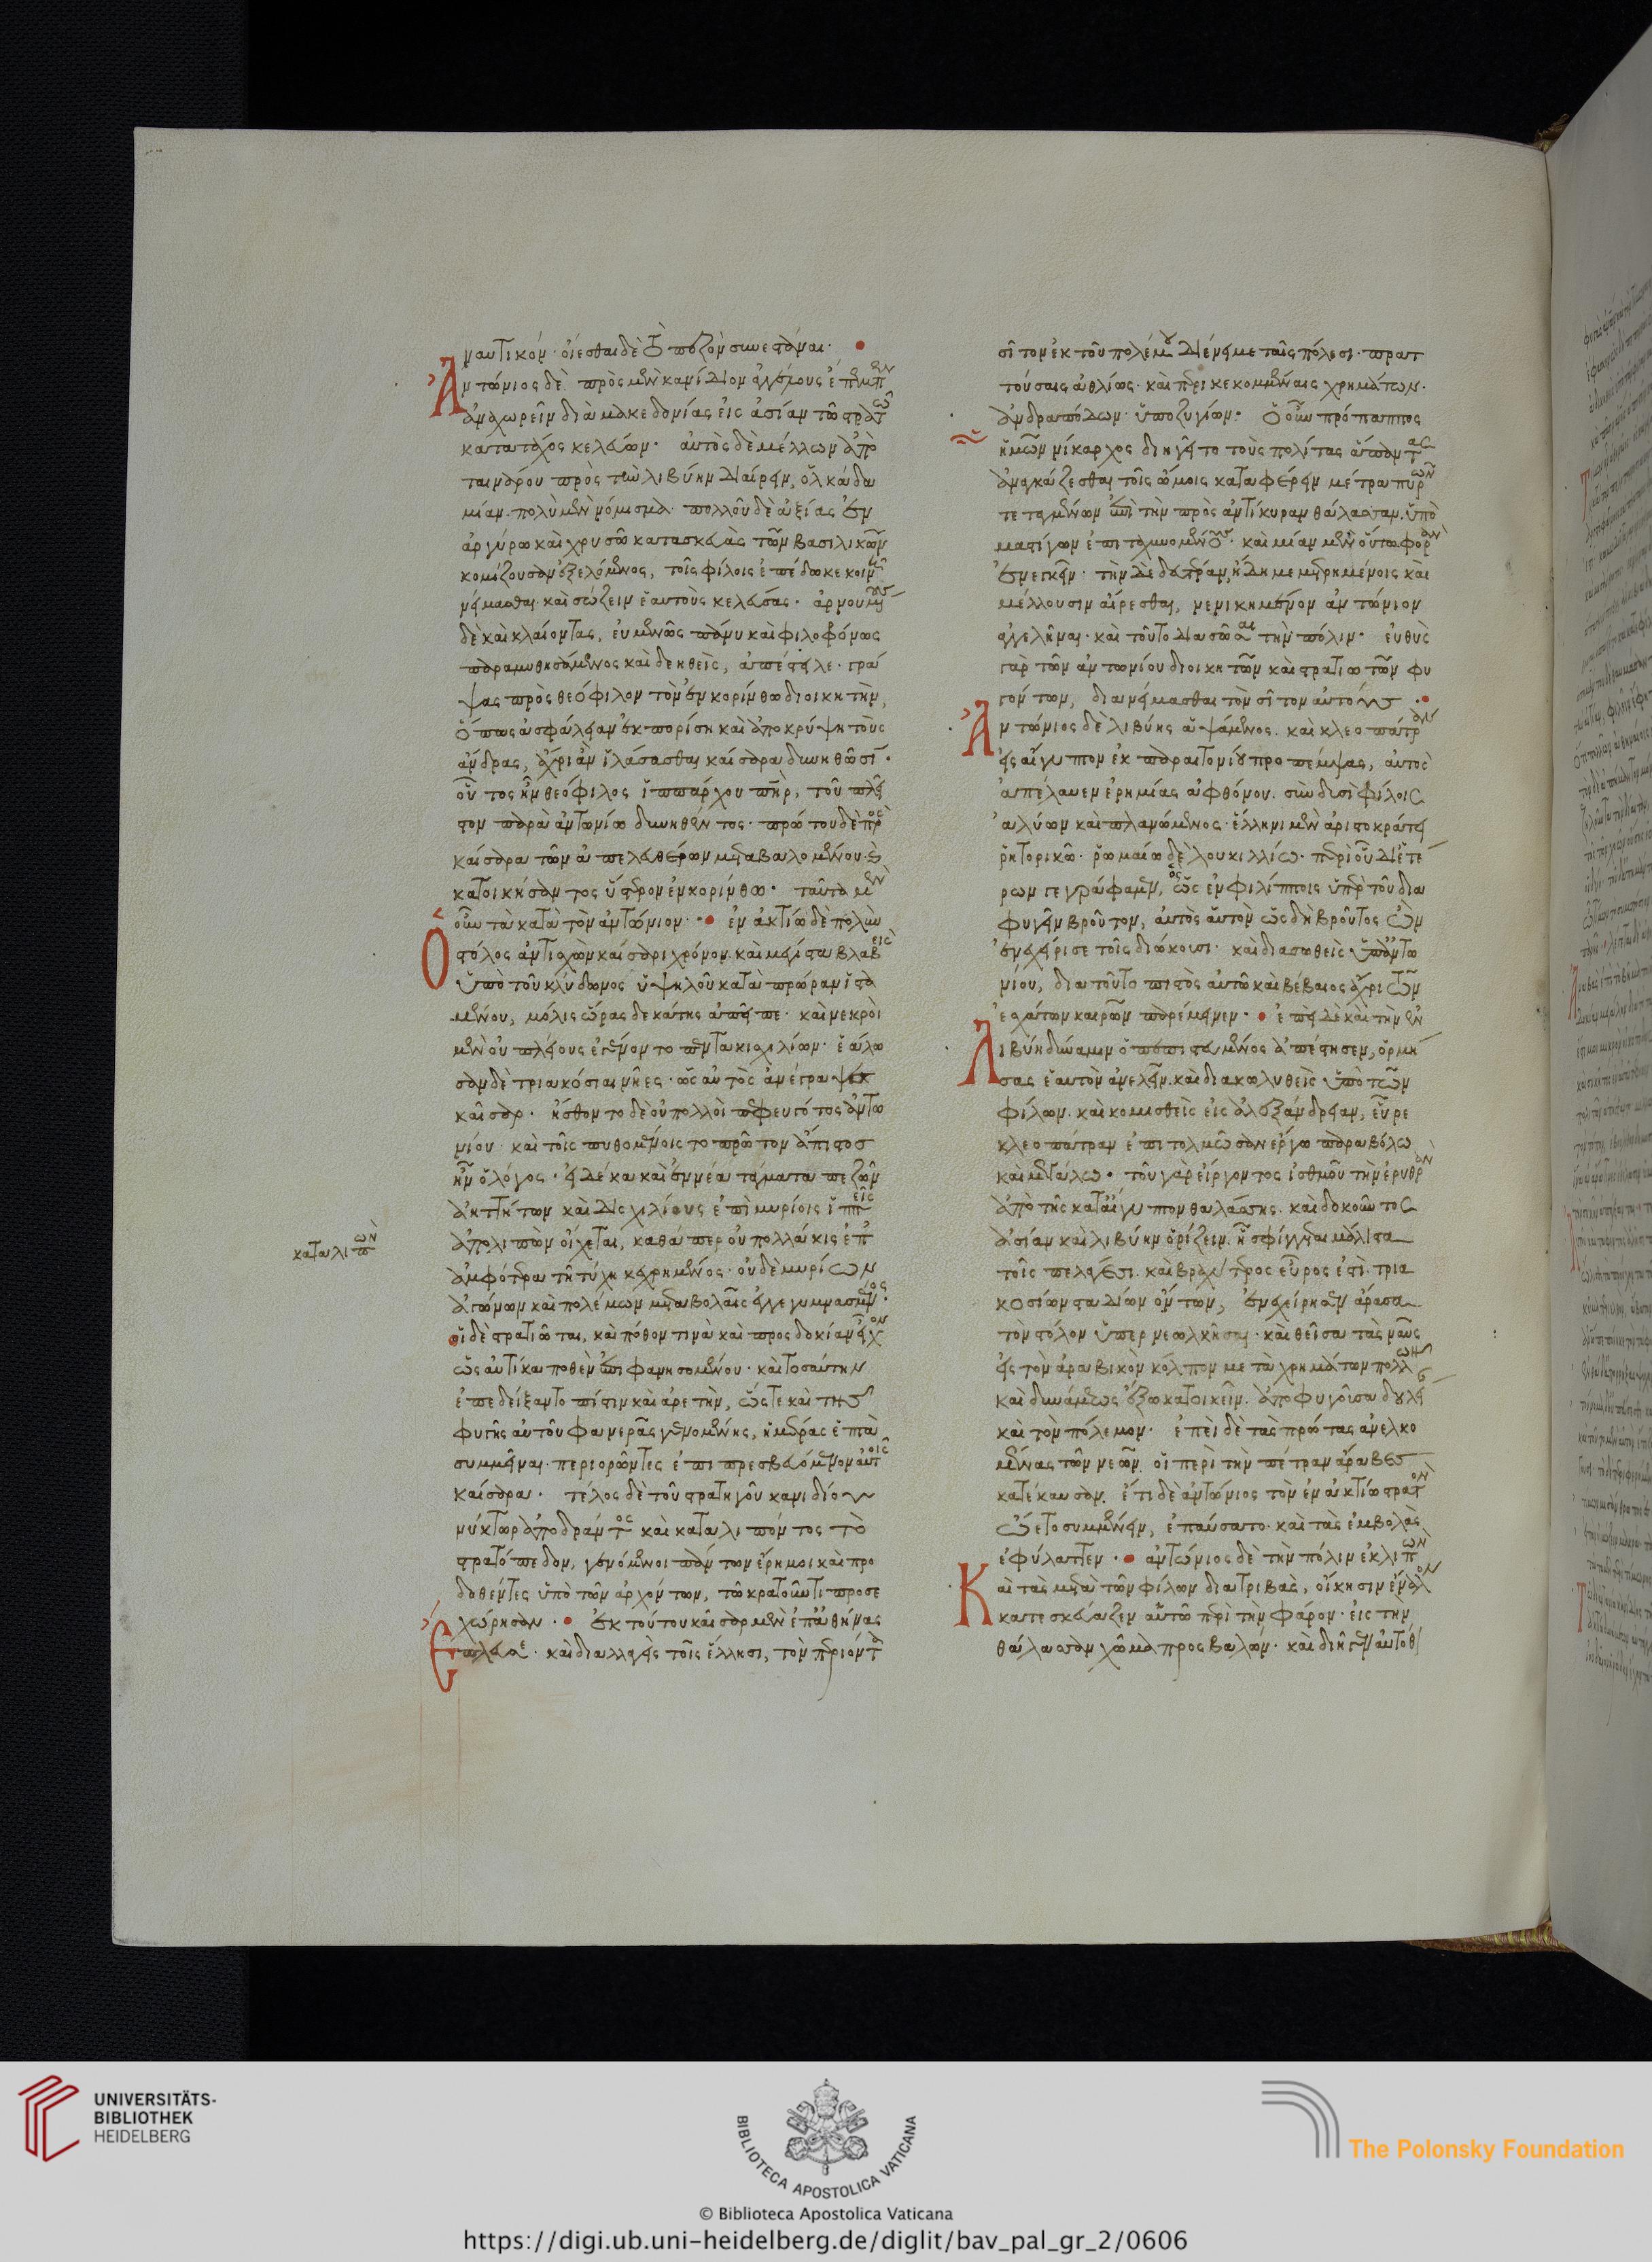 ναυτικόν· οἴεσθαι δὲ τὸ πεζὸν συνεστάναι·
Ἀντώνιος δὲ πρὸς μὲν κανίδιον ἀγγέλους ἔπεμπεν
ἀναχωρεῖν διὰ μακεδονίας εἰς ἀσίαν τῶ στρατῶ
κατὰ τάχος κελεύων· αὐτὸς δὲ μέλλων ἀπὸ
ταινάρου πρὸς τὴν λιβύην διαίρειν, ὁλκάδα
μίαν. πολὺ μὲν νόμισμα. πολλοῦ δὲ ἀξίας ἐν
ἀργύρω καὶ χρυσῶ κατασκευὰς τῶν βασιλικῶν
κομίζουσαν ἐξελόμενος, τοῖς φίλοις ἐπέδωκε κοινῆ
νείμασθαι. καὶ σώζειν ἑαυτοὺς κελεύσας· ἀρνουμένους
δὲ καὶ κλαίοντας, εὐμενῶς πάνυ καὶ φιλοφρόνως
παραμυθησάμενος καὶ δεηθεὶς, ἀπέστειλε· γρά
ψας πρὸς θεόφιλον τὸν ἐν κορίνθω διοικητὴν,
ὅπως ἀσφάλειαν ἐκπορίση καὶ ἀποκρύψη τοὺς
ἄνδρας, ἄχρι ἂν ἱλάσασθαι καίσαρα δυνηθῶσι·
οὗτος ἦν θεόφιλος ἱππάρχου πατὴρ, τοῦ πλεῖ
στον παρὰ ἀντωνίω δυνηθέντος· πρώτου δὲ πρὸς
καίσαρα τῶν ἀπελευθέρων μεταβαλομένου· καὶ
κατοικήσαντος ὕστερον ἐν κορίνθω· ταῦτα μὲν
οὖν τὰ κατὰ τὸν ἀντώνιον· ἐν ἀκτίω δὲ πολὺν
Ὁ στόλος ἀντισχὼν καίσαρι χρόνον. καὶ μέγιστα βλαβεὶς
ὑπὸ τοῦ κλύδωνος ὑψηλοῦ κατὰ πρώραν ἱστα
μένου, μόλις ὥρας δεκάτης ἀπεῖπε· καὶ νεκροὶ
μὲν οὐ πλείους ἐγένοντο πεντακισχιλίων· ἑάλω
σαν δὲ τριακόσιαι νῆες· ὡς αὐτὸς ἀνέγραψε
καῖσαρ· ἤσθοντο δὲ οὐ πολλοὶ πεφευγότος ἀντω
νίου· καὶ τοῖς πυθομένοις τὸ πρῶτον ἄπιστος
ἦν ὁ λόγος· εἰ δέκα καὶ ἐννέα τάγματα πεζῶν
ἀηττήτων καὶ δισχιλίους ἐπὶ μυρίοις ἱππεῖς
ἀπολιπὼν οἴχεται, καθάπερ οὐ πολλάκις ἐπ'
ἀμφότερα τῆ τύχη κεχρημένος· οὐδὲ μυρίων
ἀγώνων καὶ πολέμων μεταβολαῖς ἐγγεγυμνασμένος·
οἱ δὲ στρατιῶται, καὶ πόθον τινὰ καὶ προσδοκίαν εἶχον
ὡς αὐτίκα ποθὲν ἐπιφανησομένου· καὶ τοσαύτην
ἐπεδείξαντο πίστιν καὶ ἀρετὴν, ὥστε καὶ τῆς
φυγῆς αὐτοῦ φανερᾶς γενομένης, ἡμέρας ἑπτὰ
συμμεῖναι· περιορῶντες ἐπιπρεσβευόμενον αὐτοῖς
καίσαρα· τέλος δὲ τοῦ στρατηγοῦ κανιδίου
νύκτωρ ἀποδράντος καὶ καταλιπόντος τὸ
στρατόπεδον, γενόμενοι πάντων ἔρημοι καὶ προ
δοθέντες ὑπὸ τῶν ἀρχόντων, τῶ κρατοῦντι προσε
χώρησαν· ἐκ τούτου καῖσαρ μὲν ἐπ' ἀθήνας
Ἔπλευσε· καὶ διαλλαγεὶς τοῖς ἕλλησι, τὸν περιόντα
καταλιπὼν
σῖτον ἐκ τοῦ πολέμου διένειμε ταῖς πόλεσι· πρατ
τούσαις ἀθλίως· καὶ περικεκομμέναις χρημάτων.
ἀνδραπόδων· ὑποζυγίων· ὁ οὖν πρόπαππος
ἡμῶν νίκαρχος διηγεῖτο τοὺς πολίτας ἅπαντας
ἀναγκάζεσθαι τοῖς ὤμοις καταφέρειν μέτρα πυρῶν
τεταγμένων ἐπὶ τὴν πρὸς ἀντίκυραν θάλασσαν. ὑπὸ
μαστίγων ἐπιταχυνομένους· καὶ μίαν μὲν οὕτω φορὰν
ἐνεγκεῖν· τὴν δὲ δευτέραν, ἤδη μεμετρημένοις καὶ
μέλλουσιν αἴρεσθαι, νενικημένον ἀντώνιον
ἀγγελῆναι· καὶ τοῦτο διασῶσαι τὴν πόλιν· εὐθὺς
γὰρ τῶν ἀντωνίου διοικητῶν καὶ στρατιωτῶν φυ
γόντων, διανείμασθαι τὸν σῖτον αὐτούς·
Ἀντώνιος δὲ λιβύης ἁψάμενος. καὶ κλεοπάτραν
εἰς αἴγυπτον ἐκ παραιτονίου προπέμψας, αὐτὸς
ἀπέλαυεν ἐρημίας ἀφθόνου. σὺν δυσὶ φίλοις
ἀλύων καὶ πλανώμενος· ἕλληνι μὲν ἀριστοκράτει
ῥητορικῶ· ῥωμαίω δὲ λουκιλλίω· περὶ οὗ δι' ἑτέ
ρων γεγράφαμεν, ὡς ἐν φιλίπποις ὑπὲρ τοῦ δια
φυγεῖν βροῦτον, αὐτὸς αὑτὸν ὡς δὴ βροῦτος ὢν
ἐνεχείρισε τοῖς διώκουσι· καὶ διασωθεὶς ὑπ' ἀντω
νίου, διὰ τοῦτο πιστὸς αὐτῶ καὶ βέβαιος ἄχρι τῶν
ἐσχάτων καιρῶν παρέμεινεν· ἐπεὶ δὲ καὶ τὴν ἐν
Λιβύη δύναμιν ὁ πεπιστευμένος ἀπέστησεν, ὁρμή
σας ἑαυτὸν ἀνελεῖν. καὶ διακωλυθεὶς ὑπὸ τῶν
φίλων. καὶ κομισθεὶς εἰς ἀλεξάνδρειαν, εὗρε
κλεοπάτραν ἐπιτολμῶσαν ἔργω παραβόλω
καὶ μεγάλω· τοῦ γὰρ εἴργοντος ἰσθμοῦ τὴν ἐρυθρὰν
ἀπὸ τῆς κατ' αἴγυπτον θαλάσσης. καὶ δοκοῦντος
ἀσίαν καὶ λιβύην ὁρίζειν. ἧ σφίγγεται μάλιστα
τοῖς πελάγεσι. καὶ βραχύτερος εὖρος ἐστὶ. τρια
κοσίων σταδίων ὄντων, ἐνεχείρησεν ἄρασα
τὸν στόλον ὑπερνεωλκῆσαι· καὶ θεῖσα τὰς ναῦς
εἰς τὸν ἀραβικὸν κόλπον μετὰ χρημάτων πολλῶν
καὶ δυνάμεως ἔξω κατοικεῖν. ἀποφυγοῦσα δουλεί
καὶ τὸν πόλεμον· ἐπεὶ δὲ τὰς πρώτας ἀνελκο
μένας τῶν νεῶν. οἱ περὶ τὴν πέτραν ἄραβες
κατέκαυσαν. ἔτι δὲ ἀντώνιος τὸν ἐν ἀκτίω στρατὸν
ὤετο συμμένειν, ἐπαύσατο· καὶ τὰς ἐμβολὰς
ἐφύλαττεν· ἀντώνιος δὲ τὴν πόλιν ἐκλιπὼν
Καὶ τὰς μετὰ τῶν φίλων διατριβὰς, οἴκησιν ἔναλον
κατεσκεύαζεν αὑτῶ περὶ τὴν φάρον· εἰς τὴν
θάλασσαν χῶμα προσβαλών· καὶ διῆγεν αὐτόθι
UNIVERSITÄTS-
BIBLIOTHEK
HEIDELBERG
BIBLIOTECA APOSTOLICA VATICANA
The Polonsky Foundation
© Biblioteca Apostolica Vaticana
https://digi.ub.uni-heidelberg.de/diglit/bav_pal_gr_2/0606